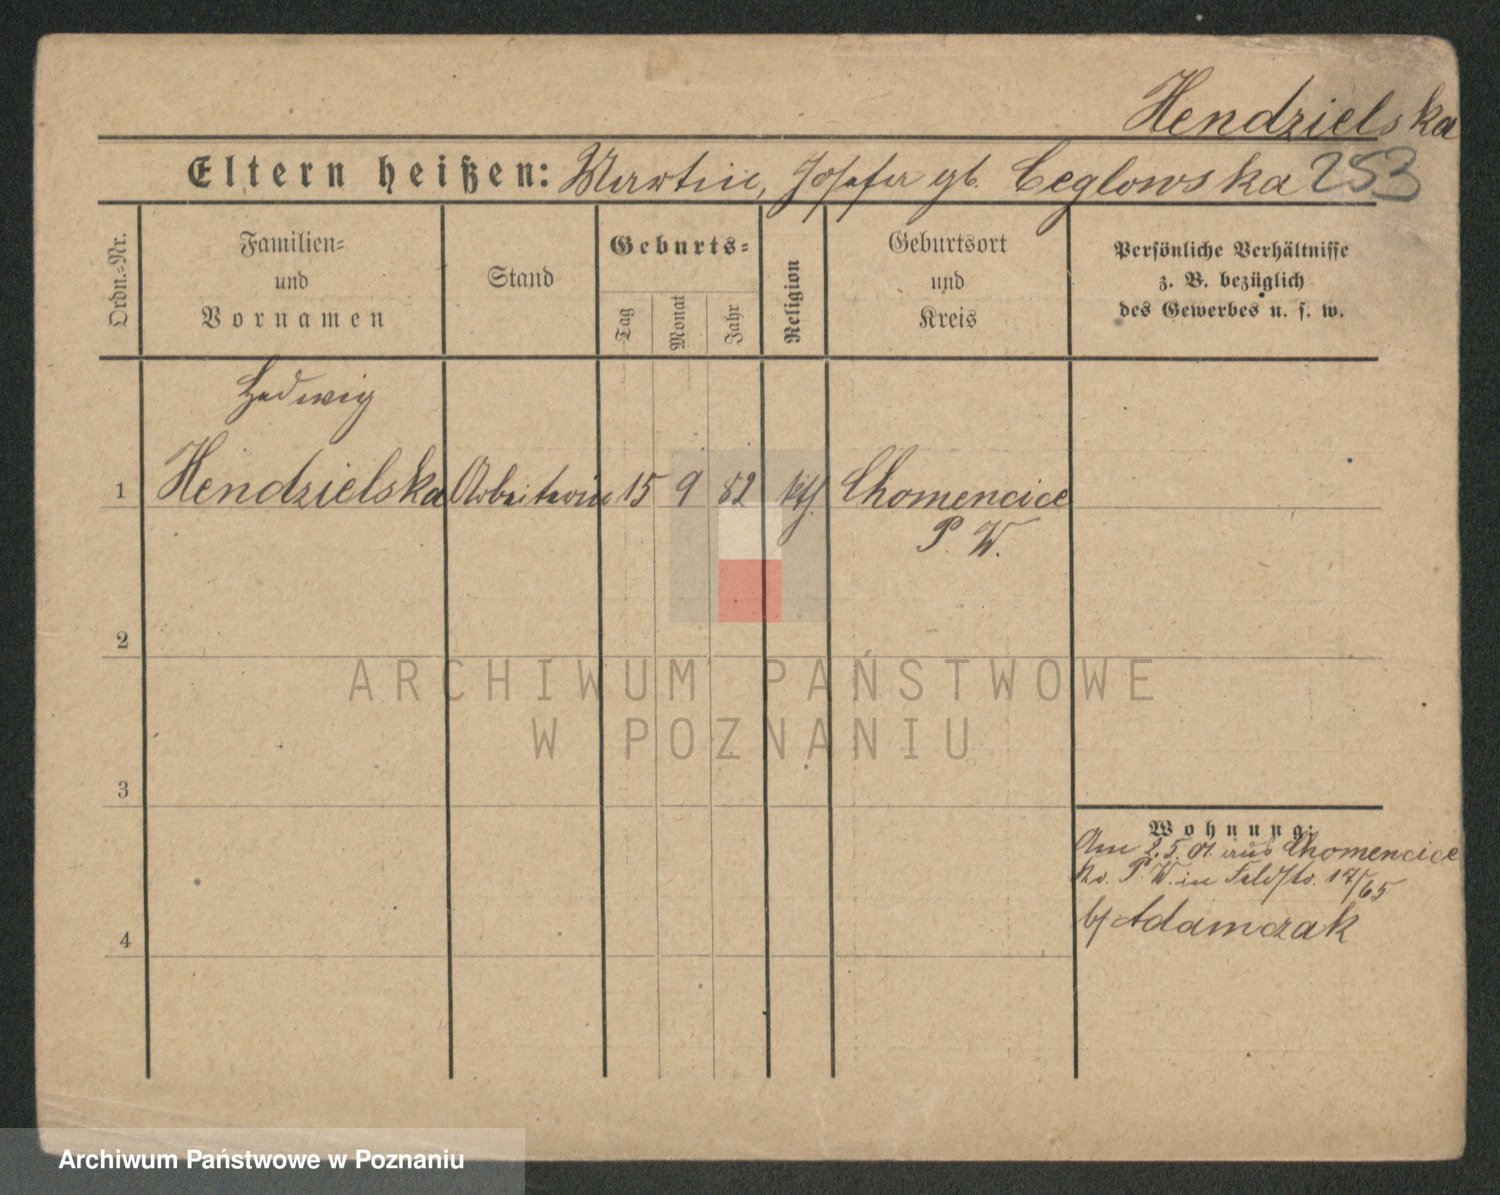 Hendzielska
Eltern heißen: Martin, Josefa gb. Ceglowska 253
Ordn.=Nr.
Familien=
und
Vornamen
Stand
Geburts=
Tag
Monat
Jahr
Religion
Geburtsort
und
Kreis
Persönliche Verhältnisse
z. B. bezüglich
des Gewerbes u. s. w.
Hedwig
1 Hendzielska Arbeiterin 15 9 82 kth. Chomencice
P. W.
2
3
4
Wohnung:
Am 2.5.01. aus Chomencice
Kr. P. W. in Feldstr. 17/65
b/ Adamczak
ARCHIWUM PAŃSTWOWE
W POZNANIU
Archiwum Państwowe w Poznaniu